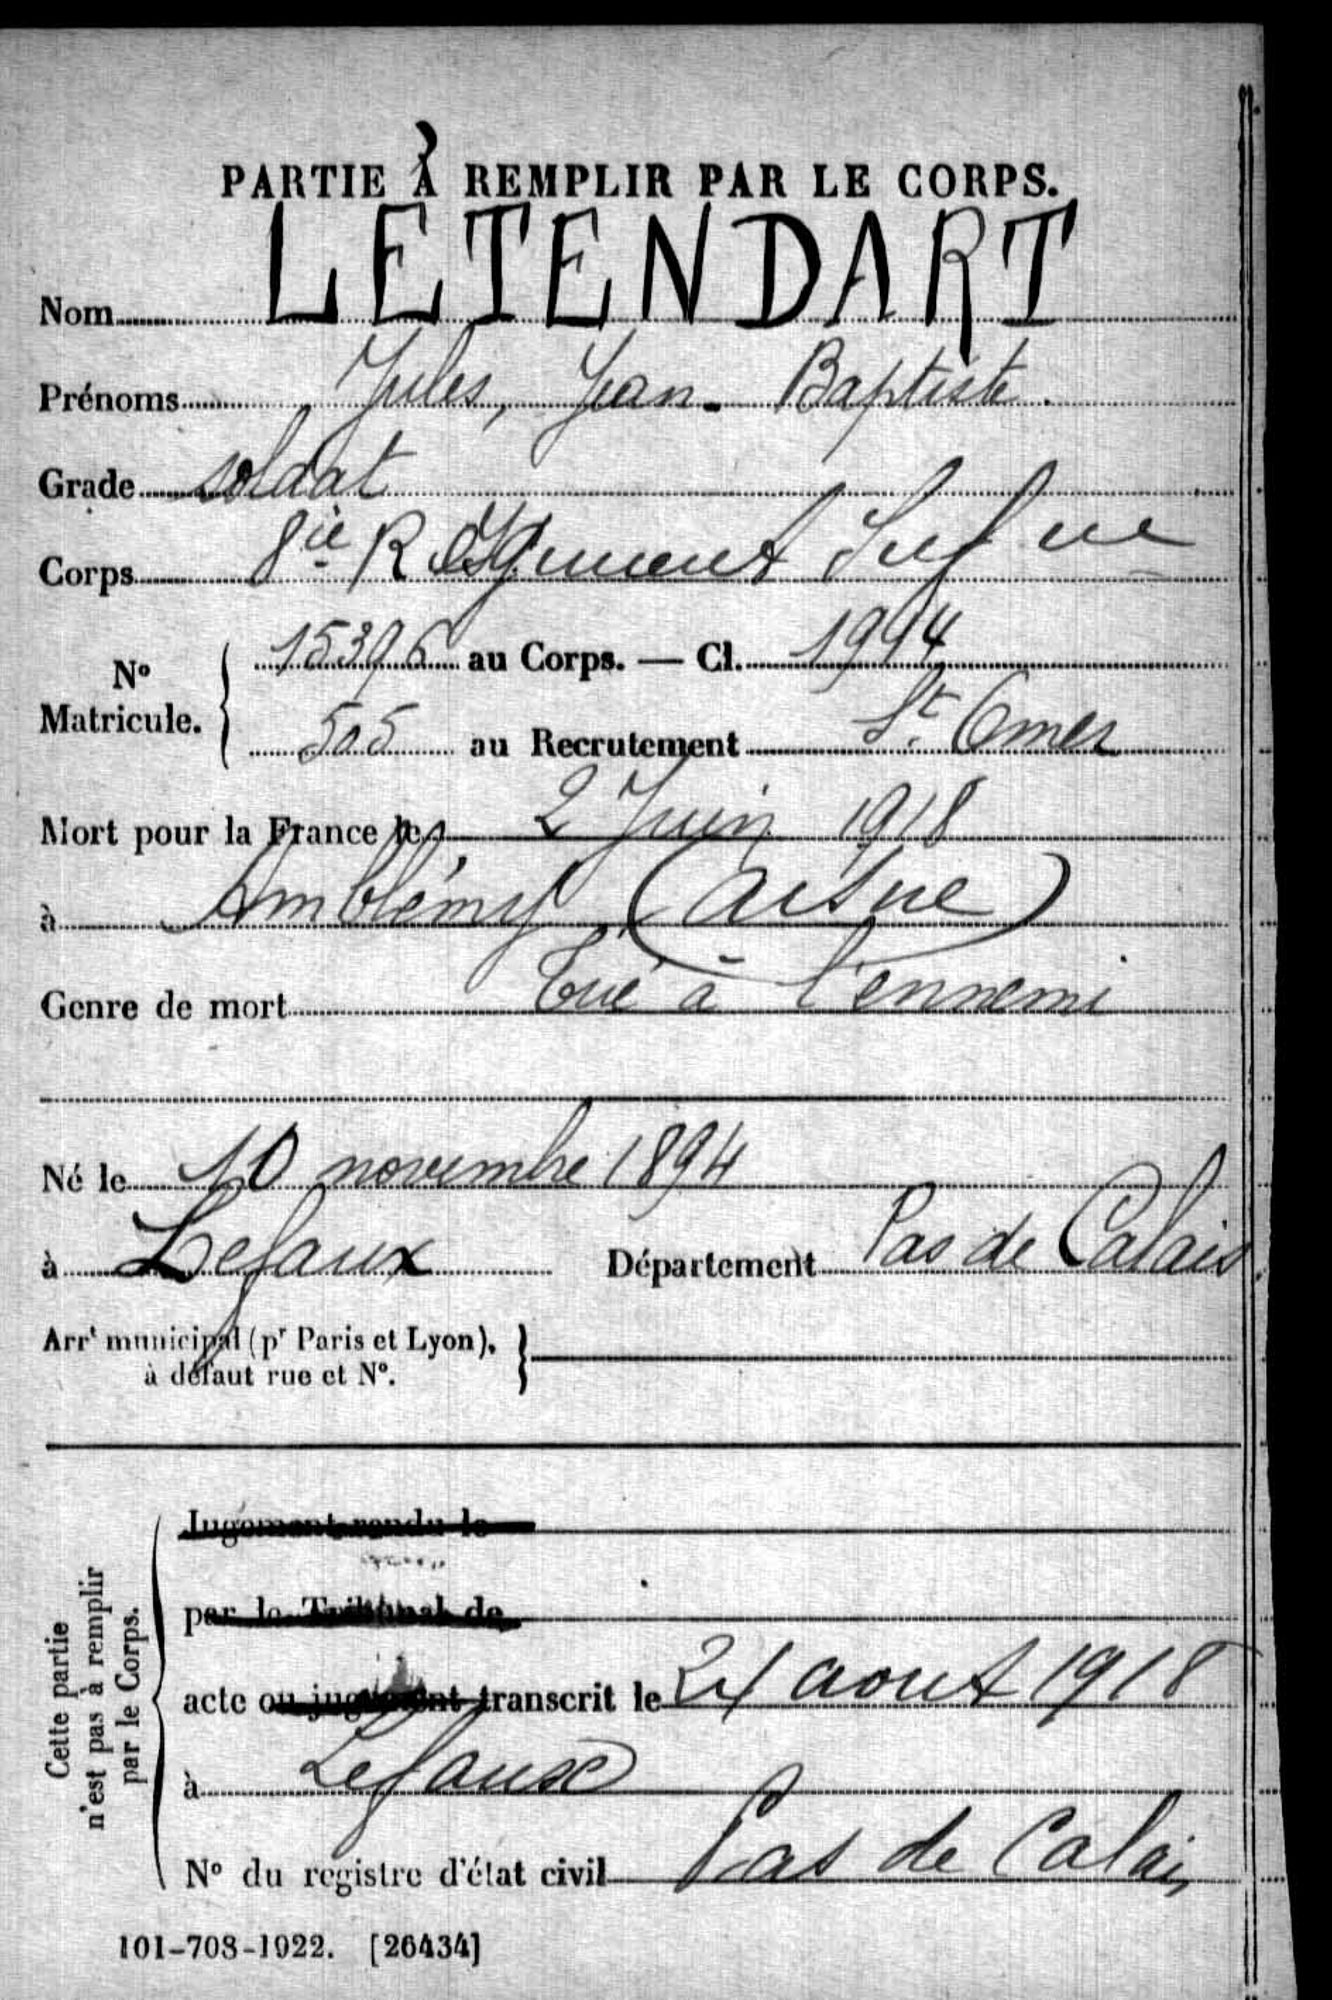 PARTIE À REMPLIR PAR LE CORPS.
Nom LETENDART
Prénoms Jules, Jean-Baptiste.
Grade soldat
Corps 8ie Régiment Inf rie
N° Matricule. 15396 au Corps. — Cl. 1914
505 au Recrutement St. Omer
Mort pour la France le 2 Juin 1918
à Amblémy (Aisne)
Genre de mort Tué à l'ennemi
Né le 10 novembre 1894
à Lefaux Département Pas de Calais
Arrt municipal (pr Paris et Lyon), à défaut rue et N°.
Cette partie n'est pas à remplir par le Corps.
Jugement rendu le
par le Tribunal de
acte ou jugement transcrit le 21 aout 1918
à Lefaux
N° du registre d'état civil Pas de Calais
101-708-1922. [26434]